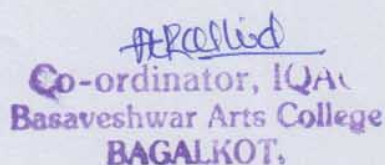 Co-ordinator, IQA
Basaveshwar Arts College
BAGALKOT.